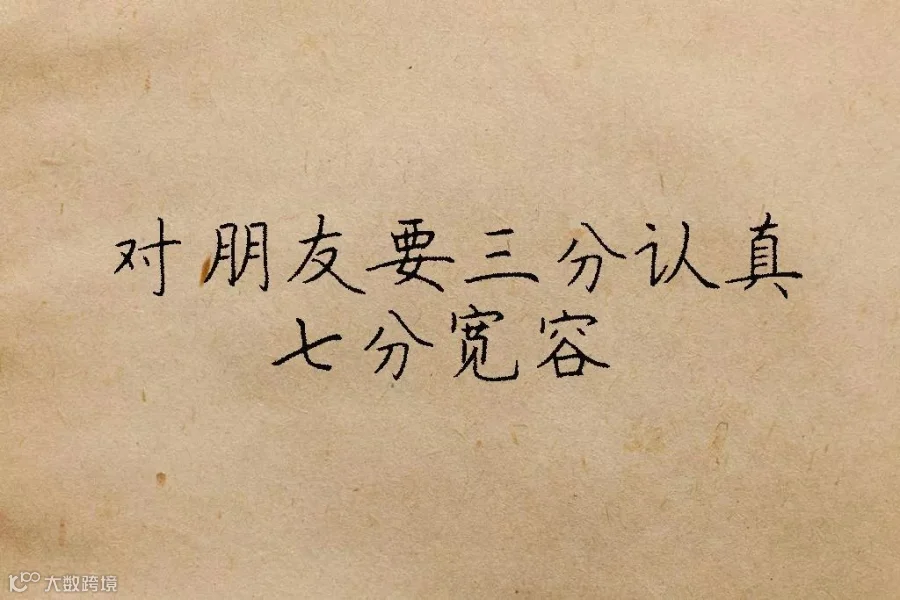 对朋友要三分认真
七分宽容
大数跨境